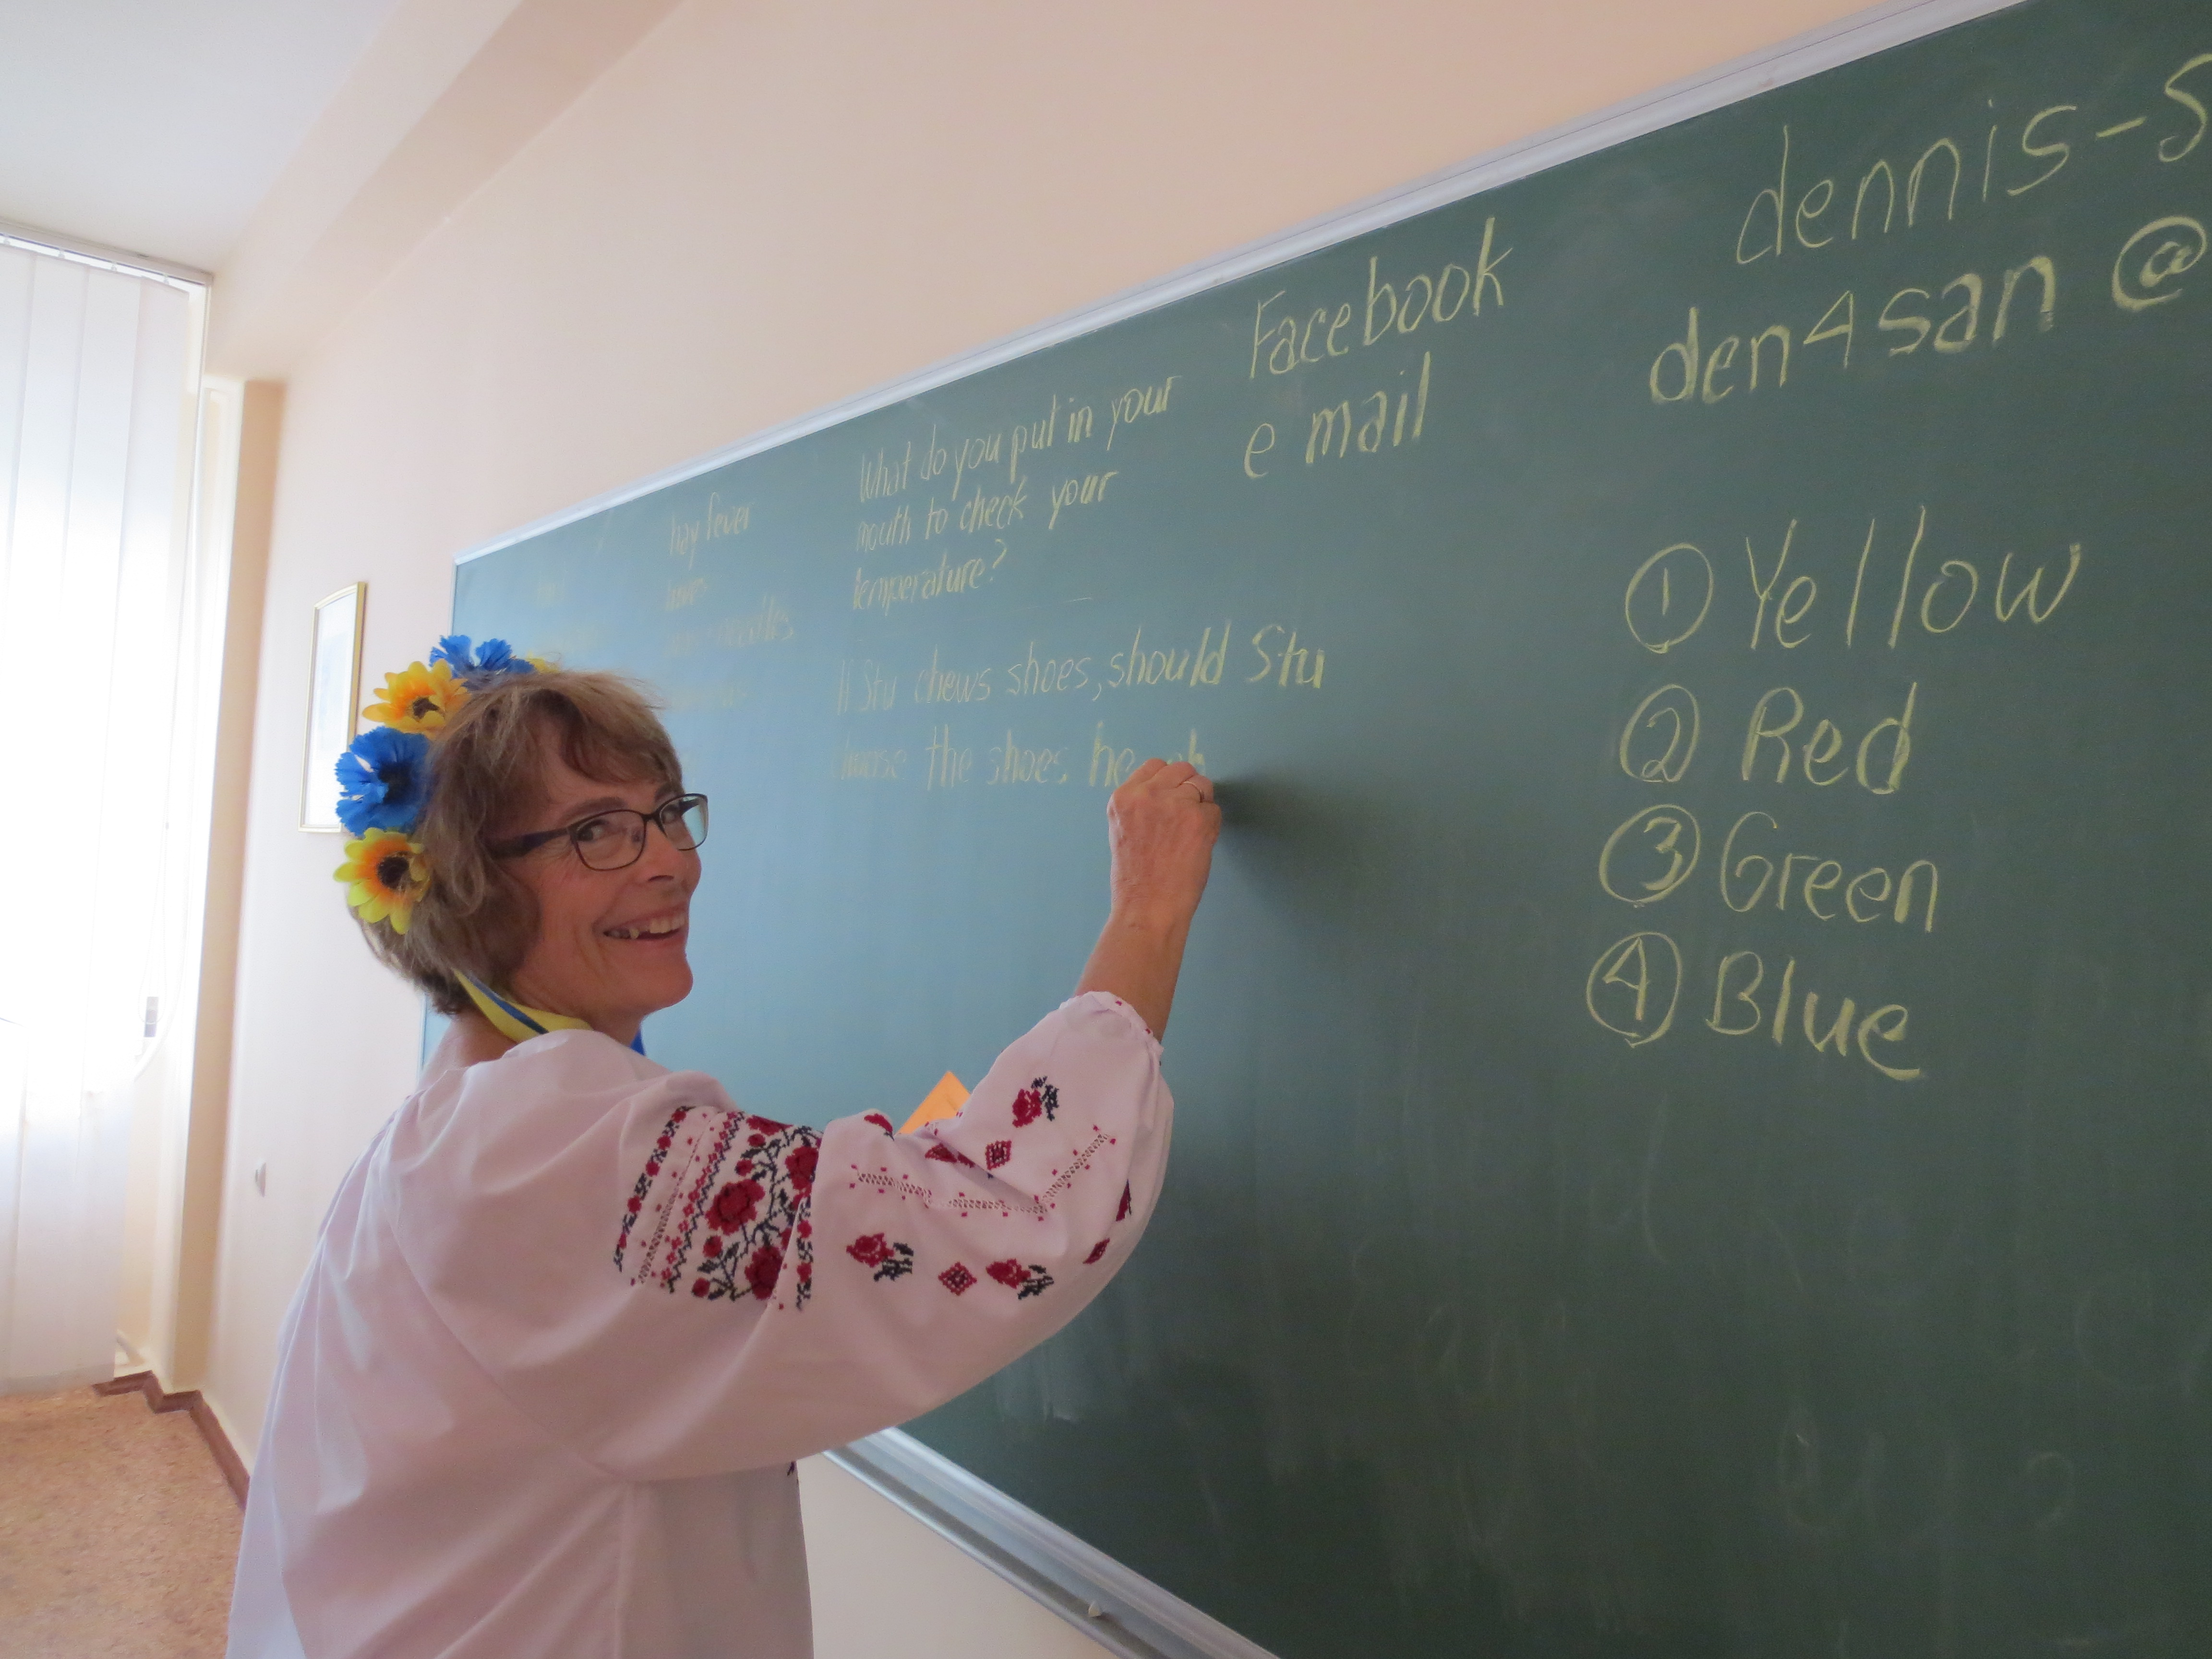 hay fever
What do you put in your
mouth to check your
temperature?
If Stu chews shoes, should Stu
choose the shoes he
Facebook
e mail
dennis-S
den4san @
① Yellow
② Red
③ Green
④ Blue